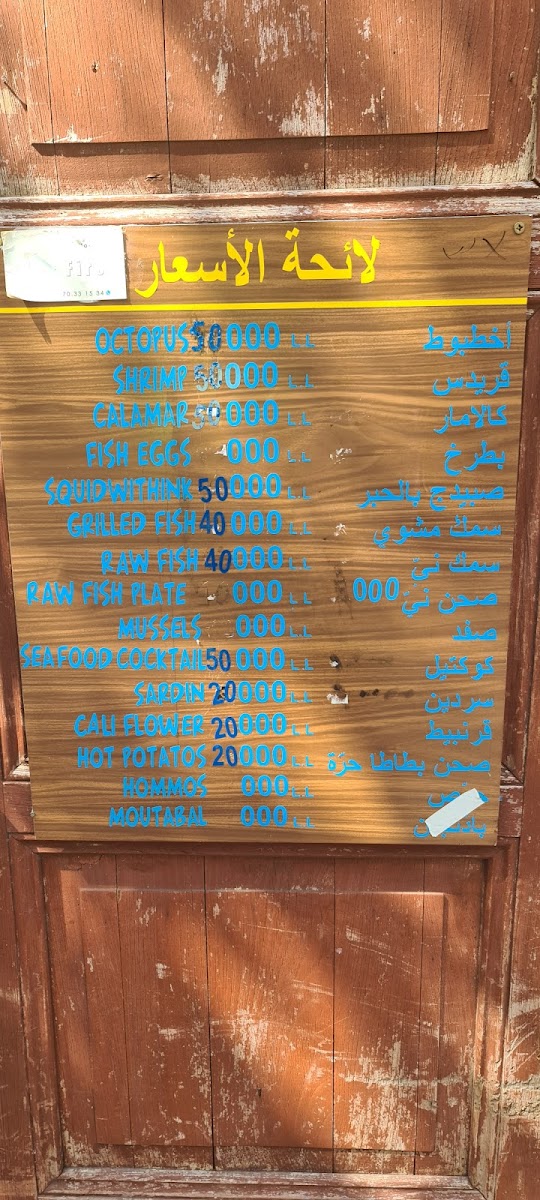 لائحة الأسعار
70 33 15 04
OCTOPUS 50 000 L.L أخطبوط
SHRIMP 50 000 L.L قريدس
CALAMAR 50 000 L.L كالامار
FISH EGGS 000 L.L بطرخ
SQUIDWITHINK 50 000 L.L صبيدج بالحبر
GRILLED FISH 40 000 L.L سمك مشوي
RAW FISH 40 000 L.L سمك نيّ
RAW FISH PLATE 000 L.L صحن نيّ 000
MUSSELS 000 L.L صفد
SEAFOOD COCKTAIL 50 000 L.L كوكتيل
SARDIN 20 000 L.L سردين
CALI FLOWER 20 000 L.L قرنبيط
HOT POTATOS 20 000 L.L صحن بطاطا حرّة
HOMMOS 000 L.L
MOUTABAL 000 L.L